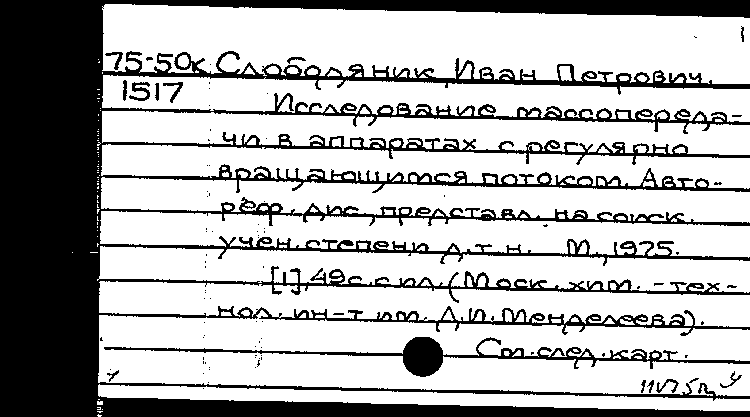 75-50к Слободяник, Иван Петрович.
1517
Исследование массопереда-
чи в аппаратах с регулярно
вращающимся потоком. Авто-
реф. дис., представл. на соиск.
учен. степени д.т.н. М., 1975.
[1], 49с. с ил. (Моск. хим. - тех-
нол. ин-т им. Д.И. Менделеева).
См. след. карт.